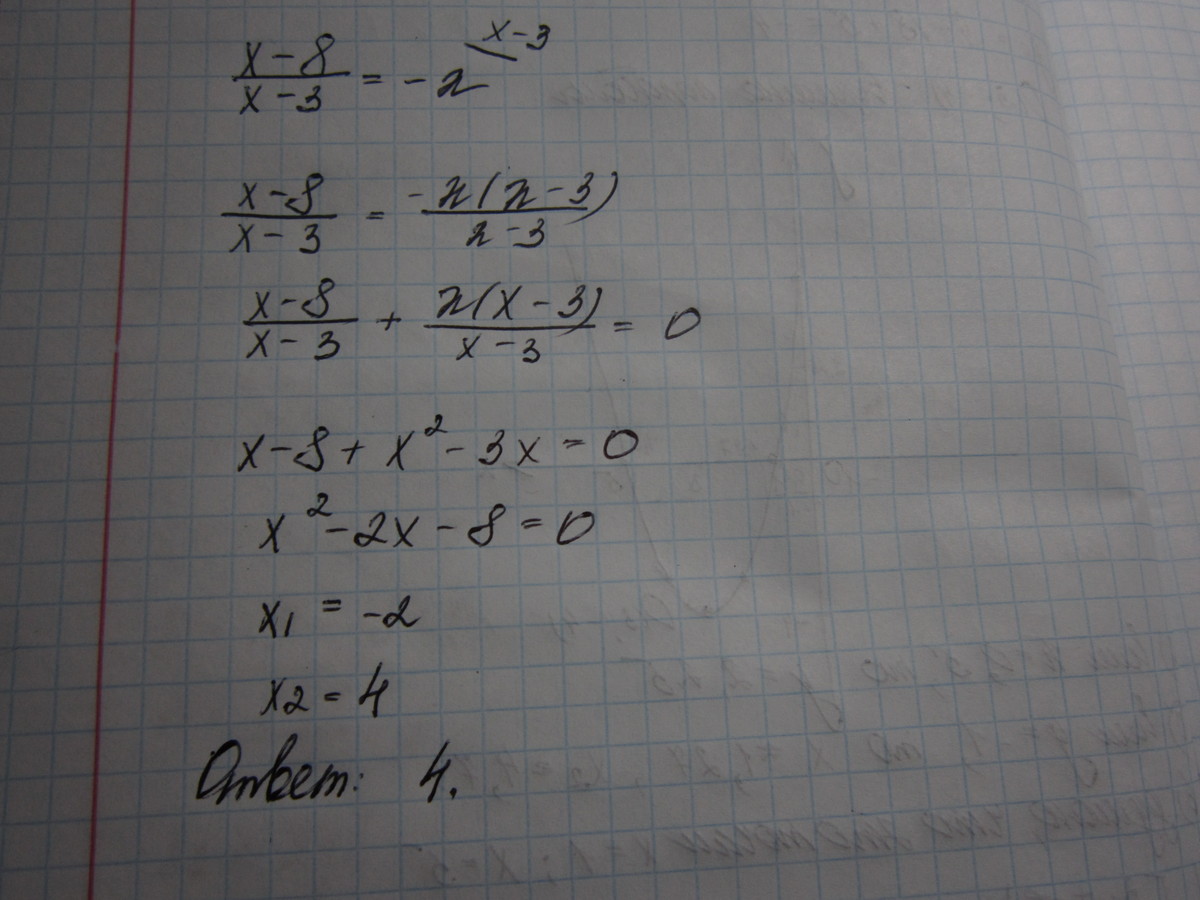 x-3
(x-8)/(x-3) = -x
(x-8)/(x-3) = -x(x-3)/(x-3)
(x-8)/(x-3) + x(x-3)/(x-3) = 0
x-8+x²-3x=0
x²-2x-8=0
x₁ = -2
x₂ = 4
Ответ: 4.